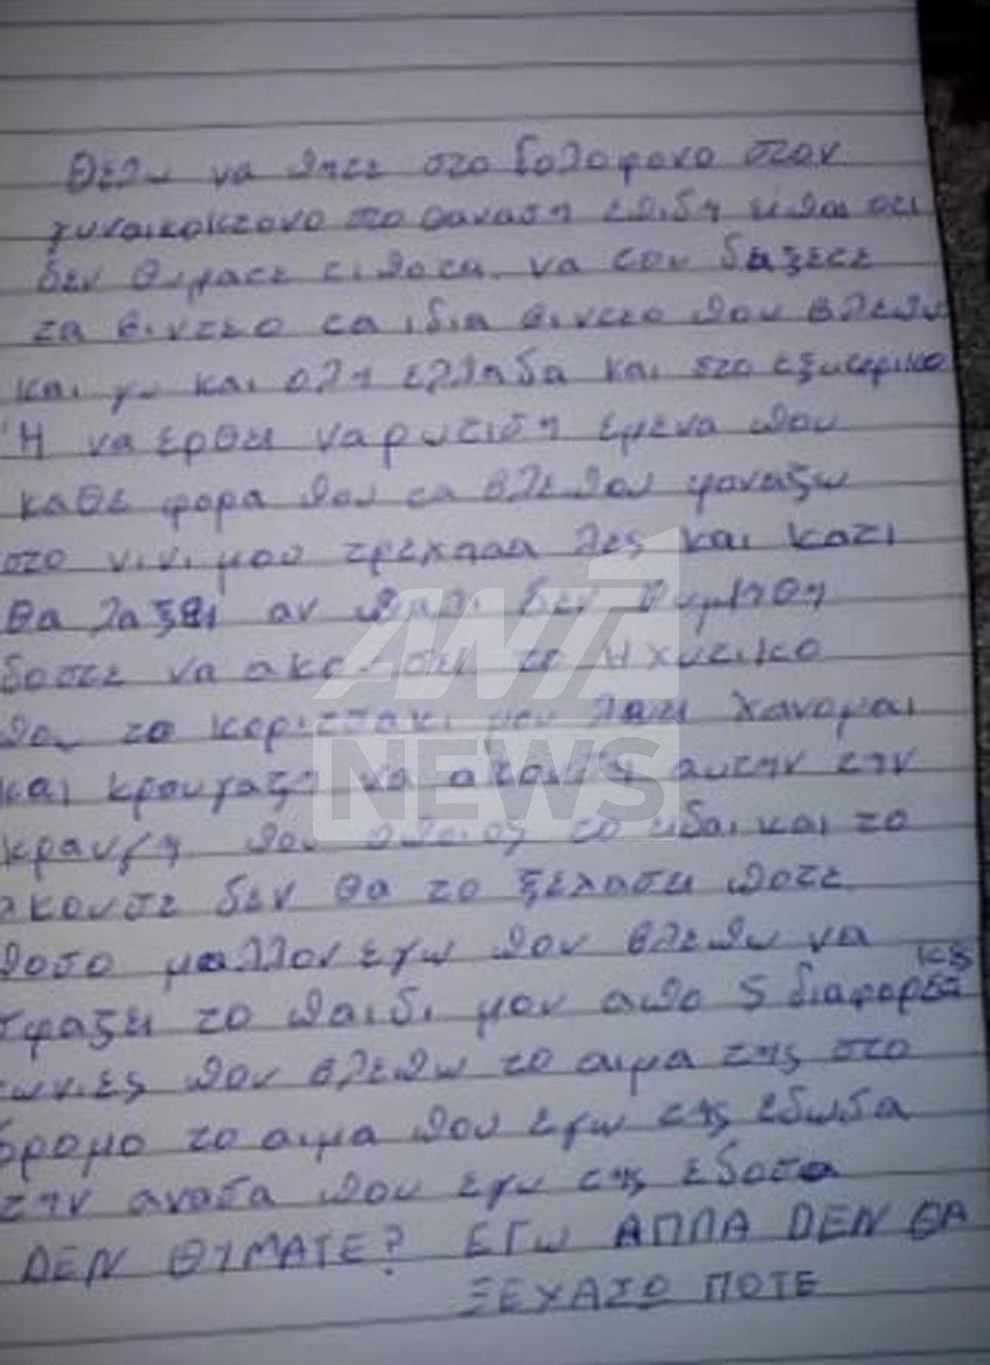 Θελω να πητε στο δολοφονο στον
γυναικοκτονο στο θαναση επιδη ειπαι οτι
δεν θυματε τιποτα. να του δειξετε
τα βιντεο τα ιδια βιντεο που βλεπω
και γω και ολη ελλαδα και στο εξωτερικο
Ή να ερθει να ρωτιση εμενα που
καθε φορα που τα βλεπου φοναζω
στο νινι μου τρεχα λες και κατι
θα λαξει αν παλι δεν θυμηθη
δοστε να ακουσει το ηχητικο
που το κοριτσακι μου λεει χανομαι
και κραυγαζη να ακουση αυτην την
κραυγη που οποιος το ειδαι και το
ακουσε δεν θα το ξεχασει ποτε
ποσο μαλλον εγω που βλεπω να
σφαζει το παιδι μου απο 5 διαφορετικες
γωνιες που βλεπω το αιμα της στο
δρομο το αιμα που εγω της εδωσα
την ανασα που εγω της εδοσα
ΔΕΝ ΘΥΜΑΤΕ? ΕΓΩ ΑΠΠΑ ΔΕΝ ΘΑ
ΞΕΧΑΣΩ ΠΟΤΕ
ANT1
NEWS